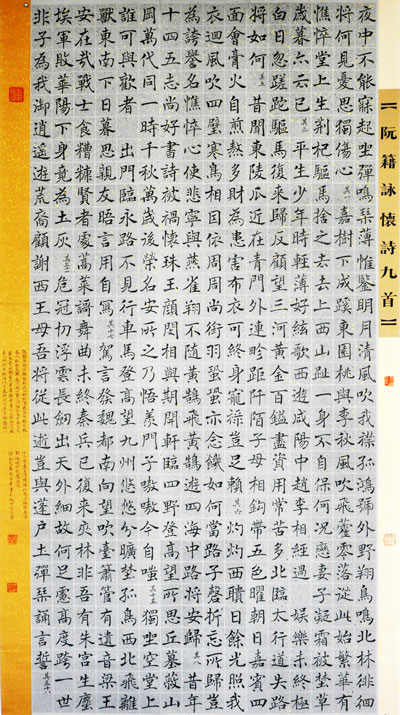 【阮籍詠懷詩九首】
夜中不能寐起坐彈鳴琴薄惟鑒明月清風吹我襟孤鴻號外野翔鳥鳴北林徘徊
將何見憂思獨傷心 其一 嘉樹下成蹊東園桃與李秋風吹飛藿零落從此始繁華有
憔悴堂上生荆杞驅馬捨之去去上西山趾一身不自保何況戀妻子凝霜被野草
歲暮亦云已 其三 平生少年時輕薄好絃歌西遊咸陽中趙李相經過娛樂未終極
白日忽蹉跎驅馬復來歸反顧望三河黃金百鎰盡資用常苦多北臨太行道失路
將如何 其五 昔聞東陵瓜近在青門外連畛距阡陌子母相鉤帶五色曜朝日嘉賓四
面會膏火自煎熬多財為患害布衣可終身寵祿豈足賴 其六 灼灼西隤日餘光照我
衣迴風吹四壁寒鳥相因依周周尚銜羽蛩蛩亦念饑如何當路子磬折忘所歸豈
為誇譽名憔悴心使悲寧與燕雀翔不隨黃鵠飛黃鵠遊四海中路將安歸 其八 昔年
十四五志尚好書詩被褐懷珠玉顏閔相與期開軒臨四野登高望所思丘墓蔽山
岡萬代同一時千秋萬歲後榮名安所之乃悟羨門子噭噭今自嗤 其十五 獨坐空堂上
誰可與歡者出門臨永路不見行車馬登高望九州悠悠分曠野孤鳥西北飛離
獸東南下日暮思親友晤言用自寫 其十七 駕言發魏都南向望吹臺簫管有遺音梁王
安在哉戰士食糟糠賢者處蒿萊歌舞曲未終秦兵已復來夾林非吾有朱宮生塵
埃軍敗華陽下身竟為土灰 危冠切浮雲長劍出天外細故何足慮高度跨一世
非子為我御逍遙遊荒裔顧謝西王母吾將從此逝豈與蓬戶士彈琴誦言誓